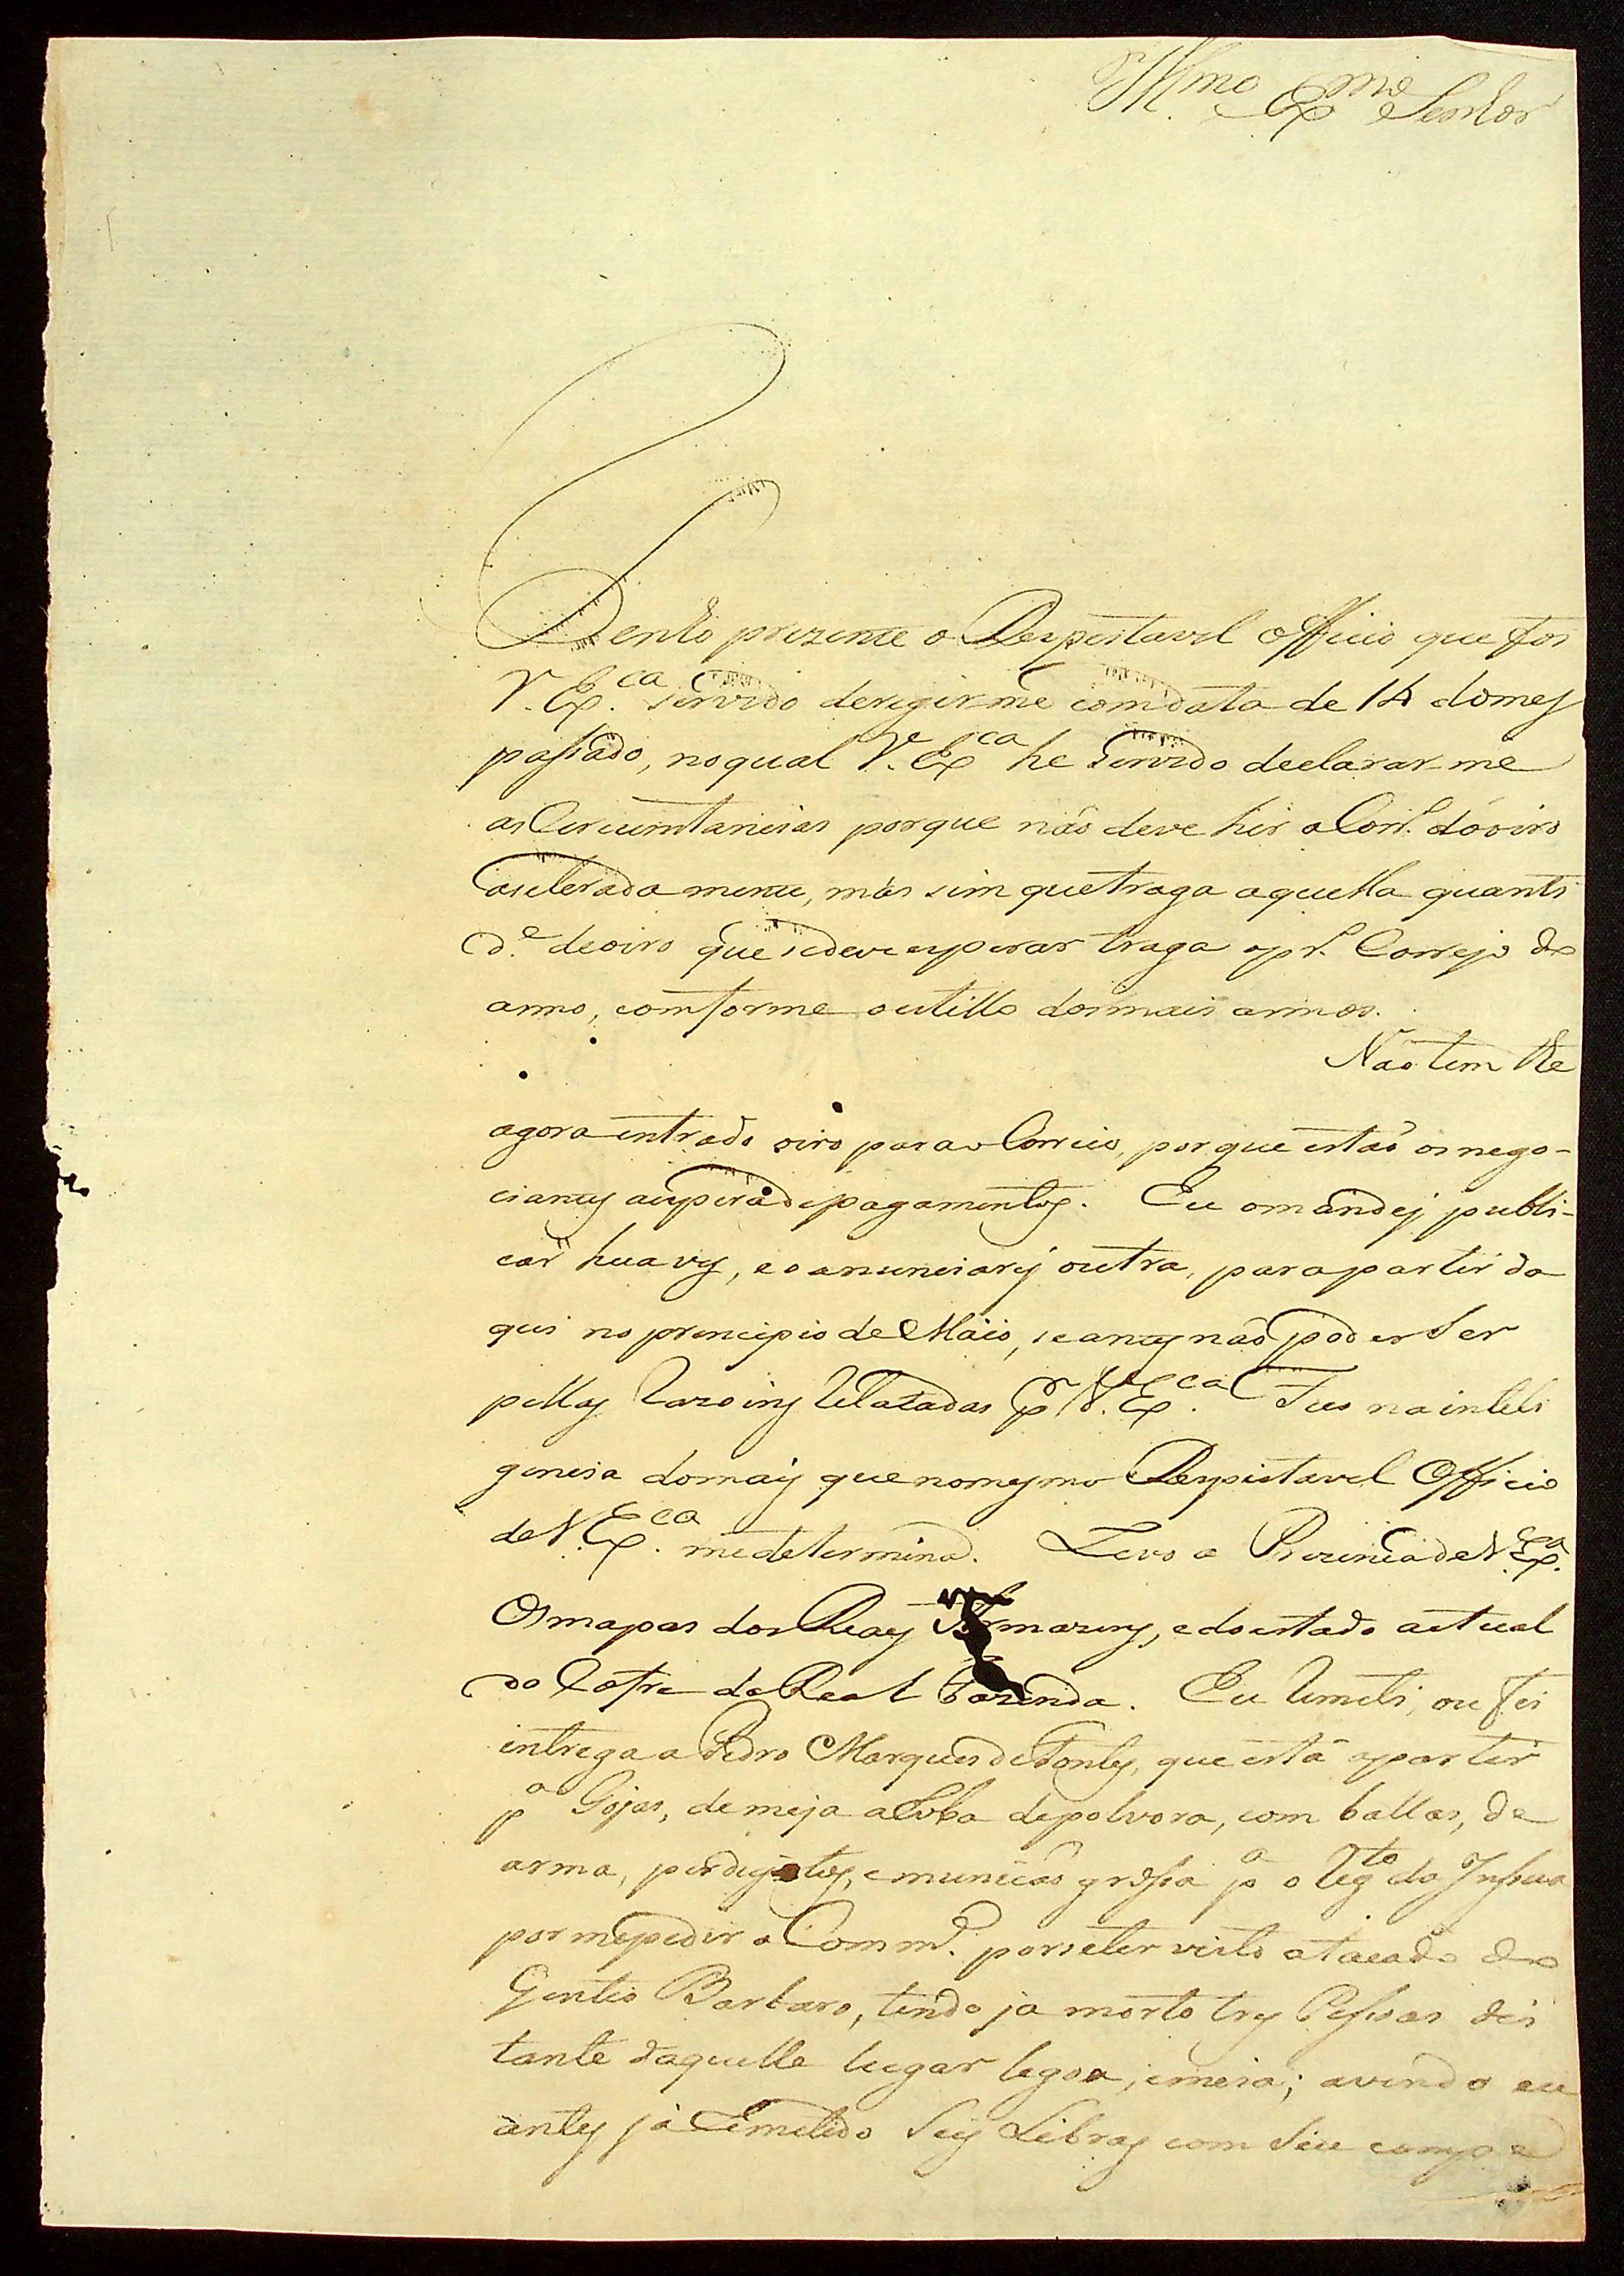 Ill.mo Ex.mo Senhor
Tenho prezente o Respeitavel Officio que foi
V. Ex.ca servido deregir-me com data de 14 do mes
passado, no qual V. Ex.ca he servido declarar-me
as Circumstancias porque não deve hir o Corr.o do oiro
aseleradamente, mas sim que traga aquella quanti
d.e de oiro que se deve esperar traga o pr.o Correjo do
anno, comforme o estillo dos mais annos.
Não tem the
agora entrado oiro para o Correio, porque estão os nego-
ciantes a espera de pagamentos. Eu o mandej publi-
car hua ves, e o anunciarej outra, para partir da
qui no principio de Maio, se antes não poder ser
pellas razoins relatadas p.r V. Ex.ca Fico na inteli
gencia do mais que no mesmo Respeitavel Officio
de V. Ex.ca me determina. Levo a Prezenca de V. Ex.a
Os mapas dos Reaes Armazens, e do estado actual
do Cofre da Real Fazenda. Eu remeti, ou fis
entrega a Pedro Marques de Fontes, que está a partir
p.a Gojas, de meja aroba de polvora, com ballas, de
arma, perdigotos, e municão grossa p.a o Reg.to do Insua
por me pedir o Comm.e por se ter visto atacado do
Gentio Barbaro, tendo ja morto tres Pessoas dis
tante daquelle lugar legoa, e meia; avendo eu
antes já remetido seis Libras com seu comp.e